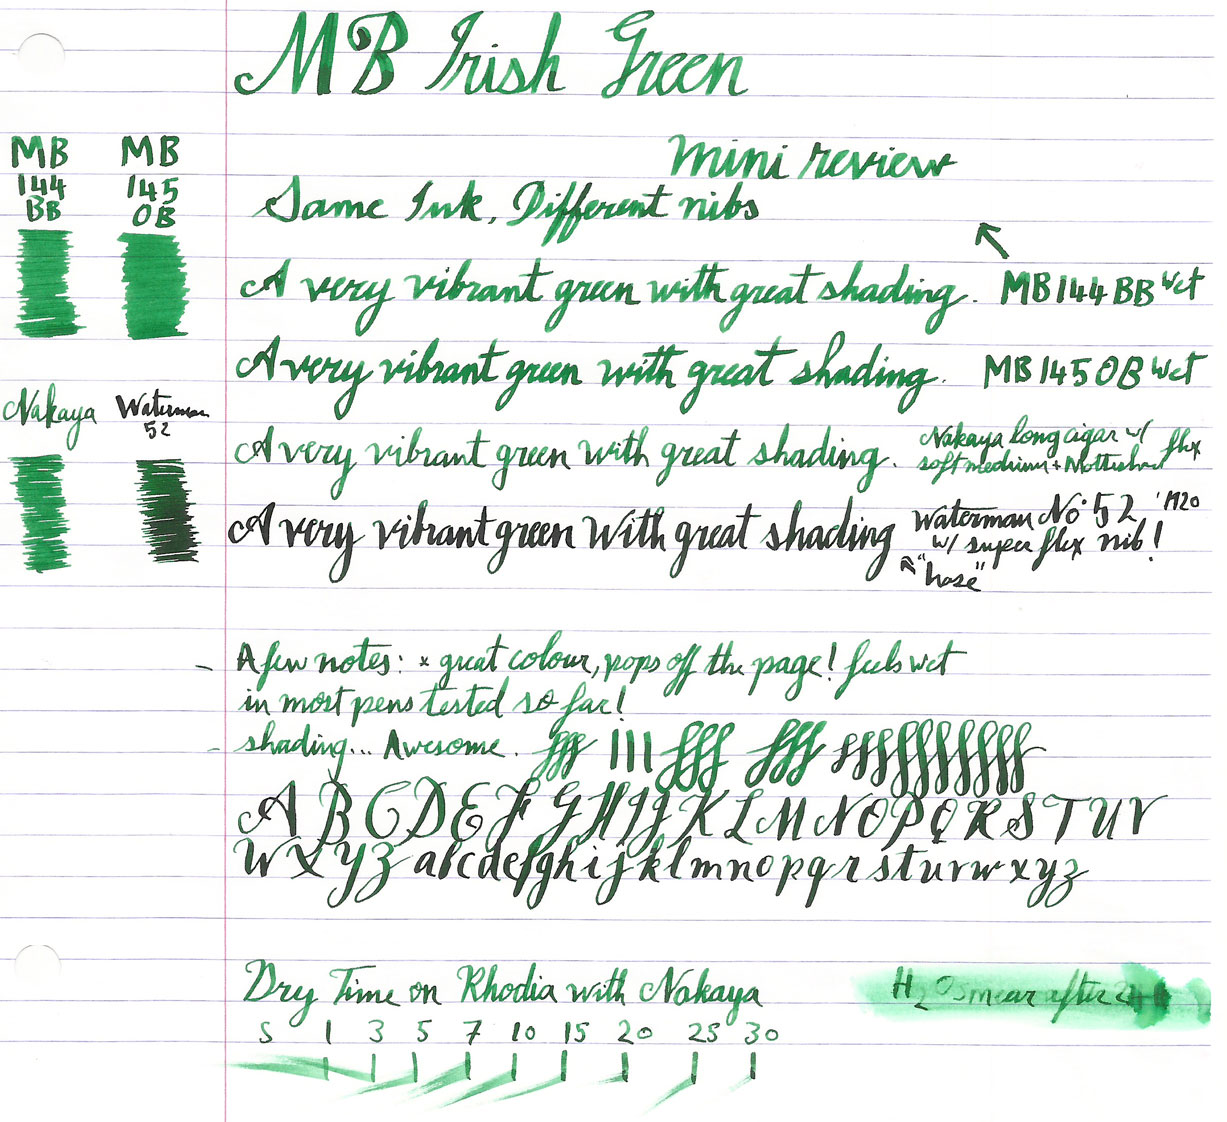 MB Irish Green
mini review
MB 144 BB
MB 145 OB
Same Ink, Different nibs
A very vibrant green with great shading. MB 144 BB Wet
A very vibrant green with great shading. MB 145 OB Wet
Nakaya
Waterman 52
A very vibrant green with great shading. Nakaya long cigar w/
soft medium + Mottishaw flex
A very vibrant green With great shading Waterman No. 52 '1920
w/ super flex nib!
"hose"
A few notes: x great colour, pops off the page! feels wet
in most pens tested so far!
- shading... Awesome.
A B C D E F G H I J K L M N O P Q R S T U V
W X Y Z a b c d e f g h i j k l m n o p q r s t u v w x y z
Dry Time on Rhodia with Nakaya
H2O smear after 24
S 1 3 5 7 10 15 20 25 30